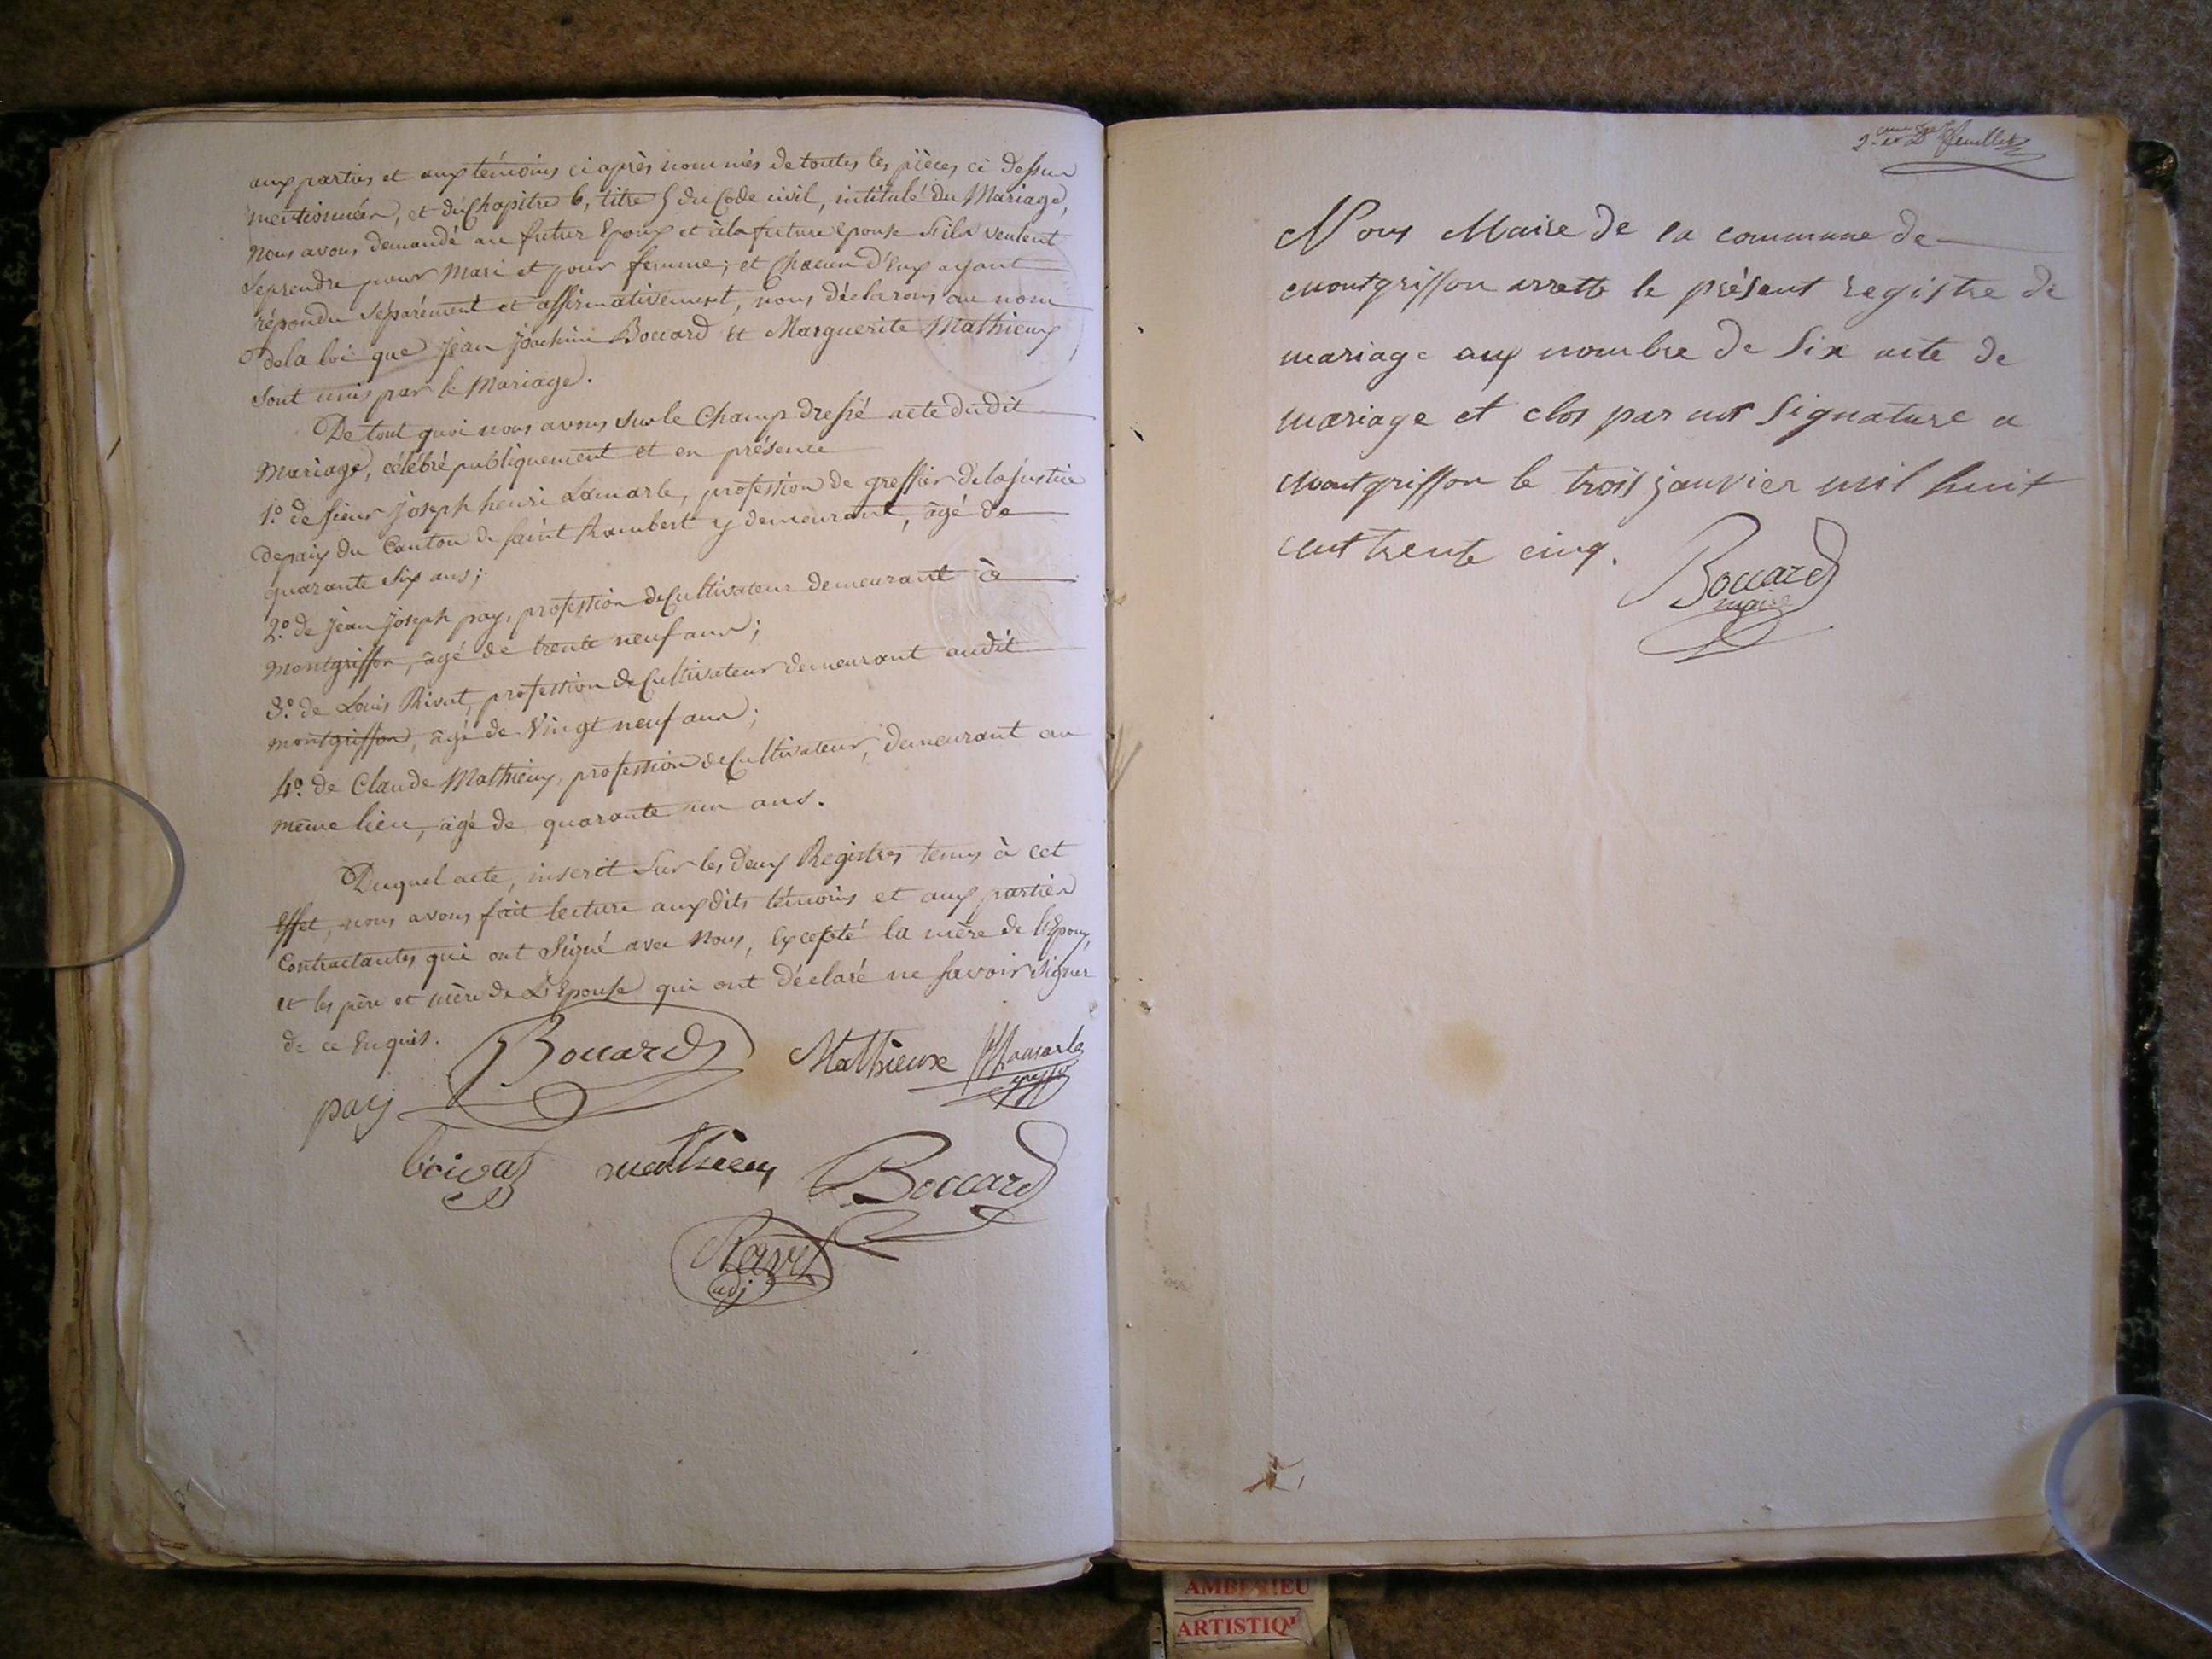 aux parties et aux témoins ci après nommés de toutes les pièces ci dessus
mentionnées, et du Chapitre 6, titre 5 du Code civil, intitulé du Mariage,
Nous avons demandé au futur Epoux et à la future Epouse s'ils veulent
se prendre pour Mari et pour femme; et Chacun d'Eux ayant
répondu séparément et affirmativement, nous déclarons au nom
de la loi que Jean Joachim Boccard et Marguerite Mathieux
sont unis par le Mariage.
De tout quoi nous avons sur le Champ dressé acte dudit
Mariage, célébré publiquement et en présence
1.º de sieur Joseph henri Lamarle, profession de greffier de la justice
de paix du Canton de saint Rambert y demeurant, âgé de
quarante six ans;
2.º de Jean Joseph pay, profession de Cultivateur demeurant à
montgriffon, âgé de trente neuf ans;
3.º de Louis Rivat, profession de Cultivateur demeurant audit
montgriffon, âgé de Vingt neuf ans;
4.º de Claude Mathieux, profession de Cultivateur, demeurant au
même lieu, âgé de quarante un ans.
Duquel acte, inscrit sur les deux Registres tenus à cet
Effet, nous avons fait lecture auxdits témoins et aux parties
Contractantes qui ont signé avec Nous, Excepté la mère de l'Epoux,
et les père et mère de L'Epouse qui ont déclaré ne savoir signer
de ce Enquis.
Boccard Mathieux Lamarle
pay
mathieux Boccard
Ravet
adj
2.e et D.er feuillet
Nous Maire de la commune de
montgriffon arrette le présent registre de
mariage aux nombre de Six acte de
mariage et clos par not signature a
montgriffon le trois janvier mil huit
cent trente cinq.
Boccard
maire
AMBERIEU
ARTISTIQU